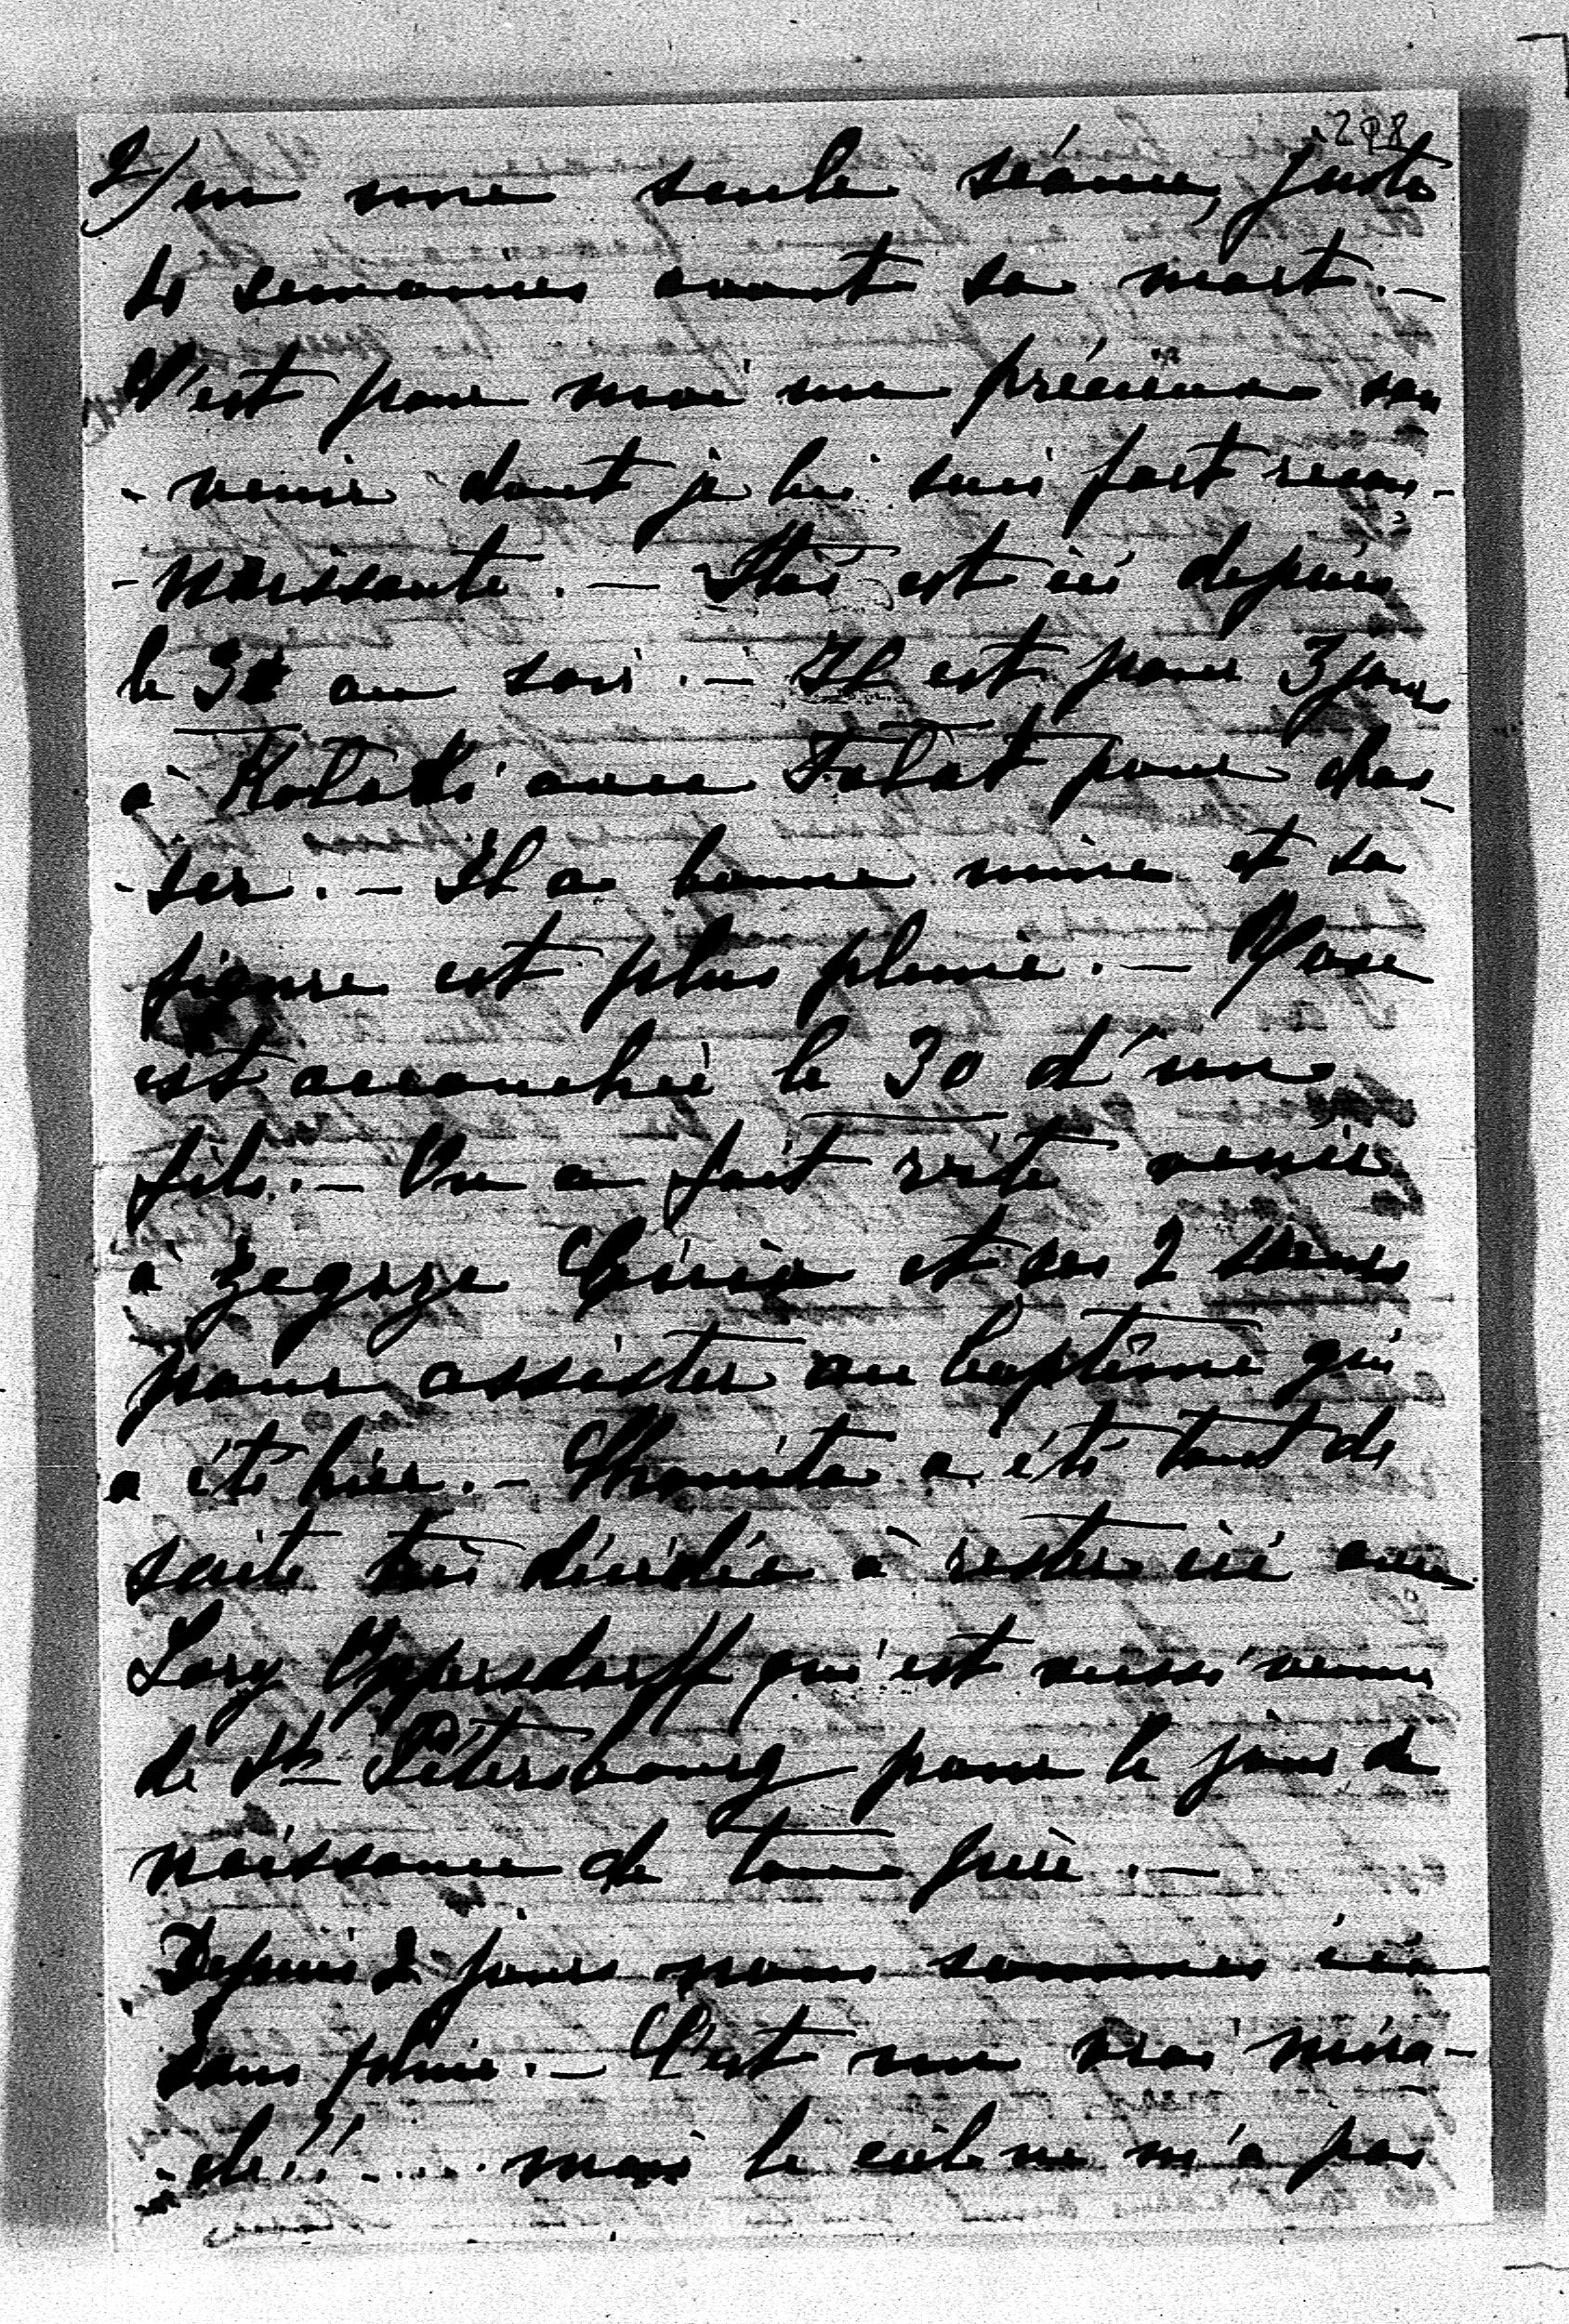 208
2/ en une seule séance, juste
4 semaines avant sa mort. –
C'est pour moi un précieux sou
- venir dont je lui suis fort recon-
- naissante. – Stas est ici depuis
le 3 au soir. – Il est pour 3 jours
à avec pour chas-
- ser. – Il a bonne mine et sa
figure est plus pleine. – Rose
est accouchée le 30 d'un
fils. – On a fait vite venir
à Zegrze et ses 2 sœurs
pour assister au baptême qui
a été hier. – a été tout de
suite très décidée à rester ici avec
Lory Oppersdorff qui est aussi venu
de St Pétersbourg pour le jour de
naissance de ton père. –
Depuis 2 jours nous sommes ici
sans pluie. – C'est un vrai mira-
- cle!! .... mais le ciel ne m'a pas